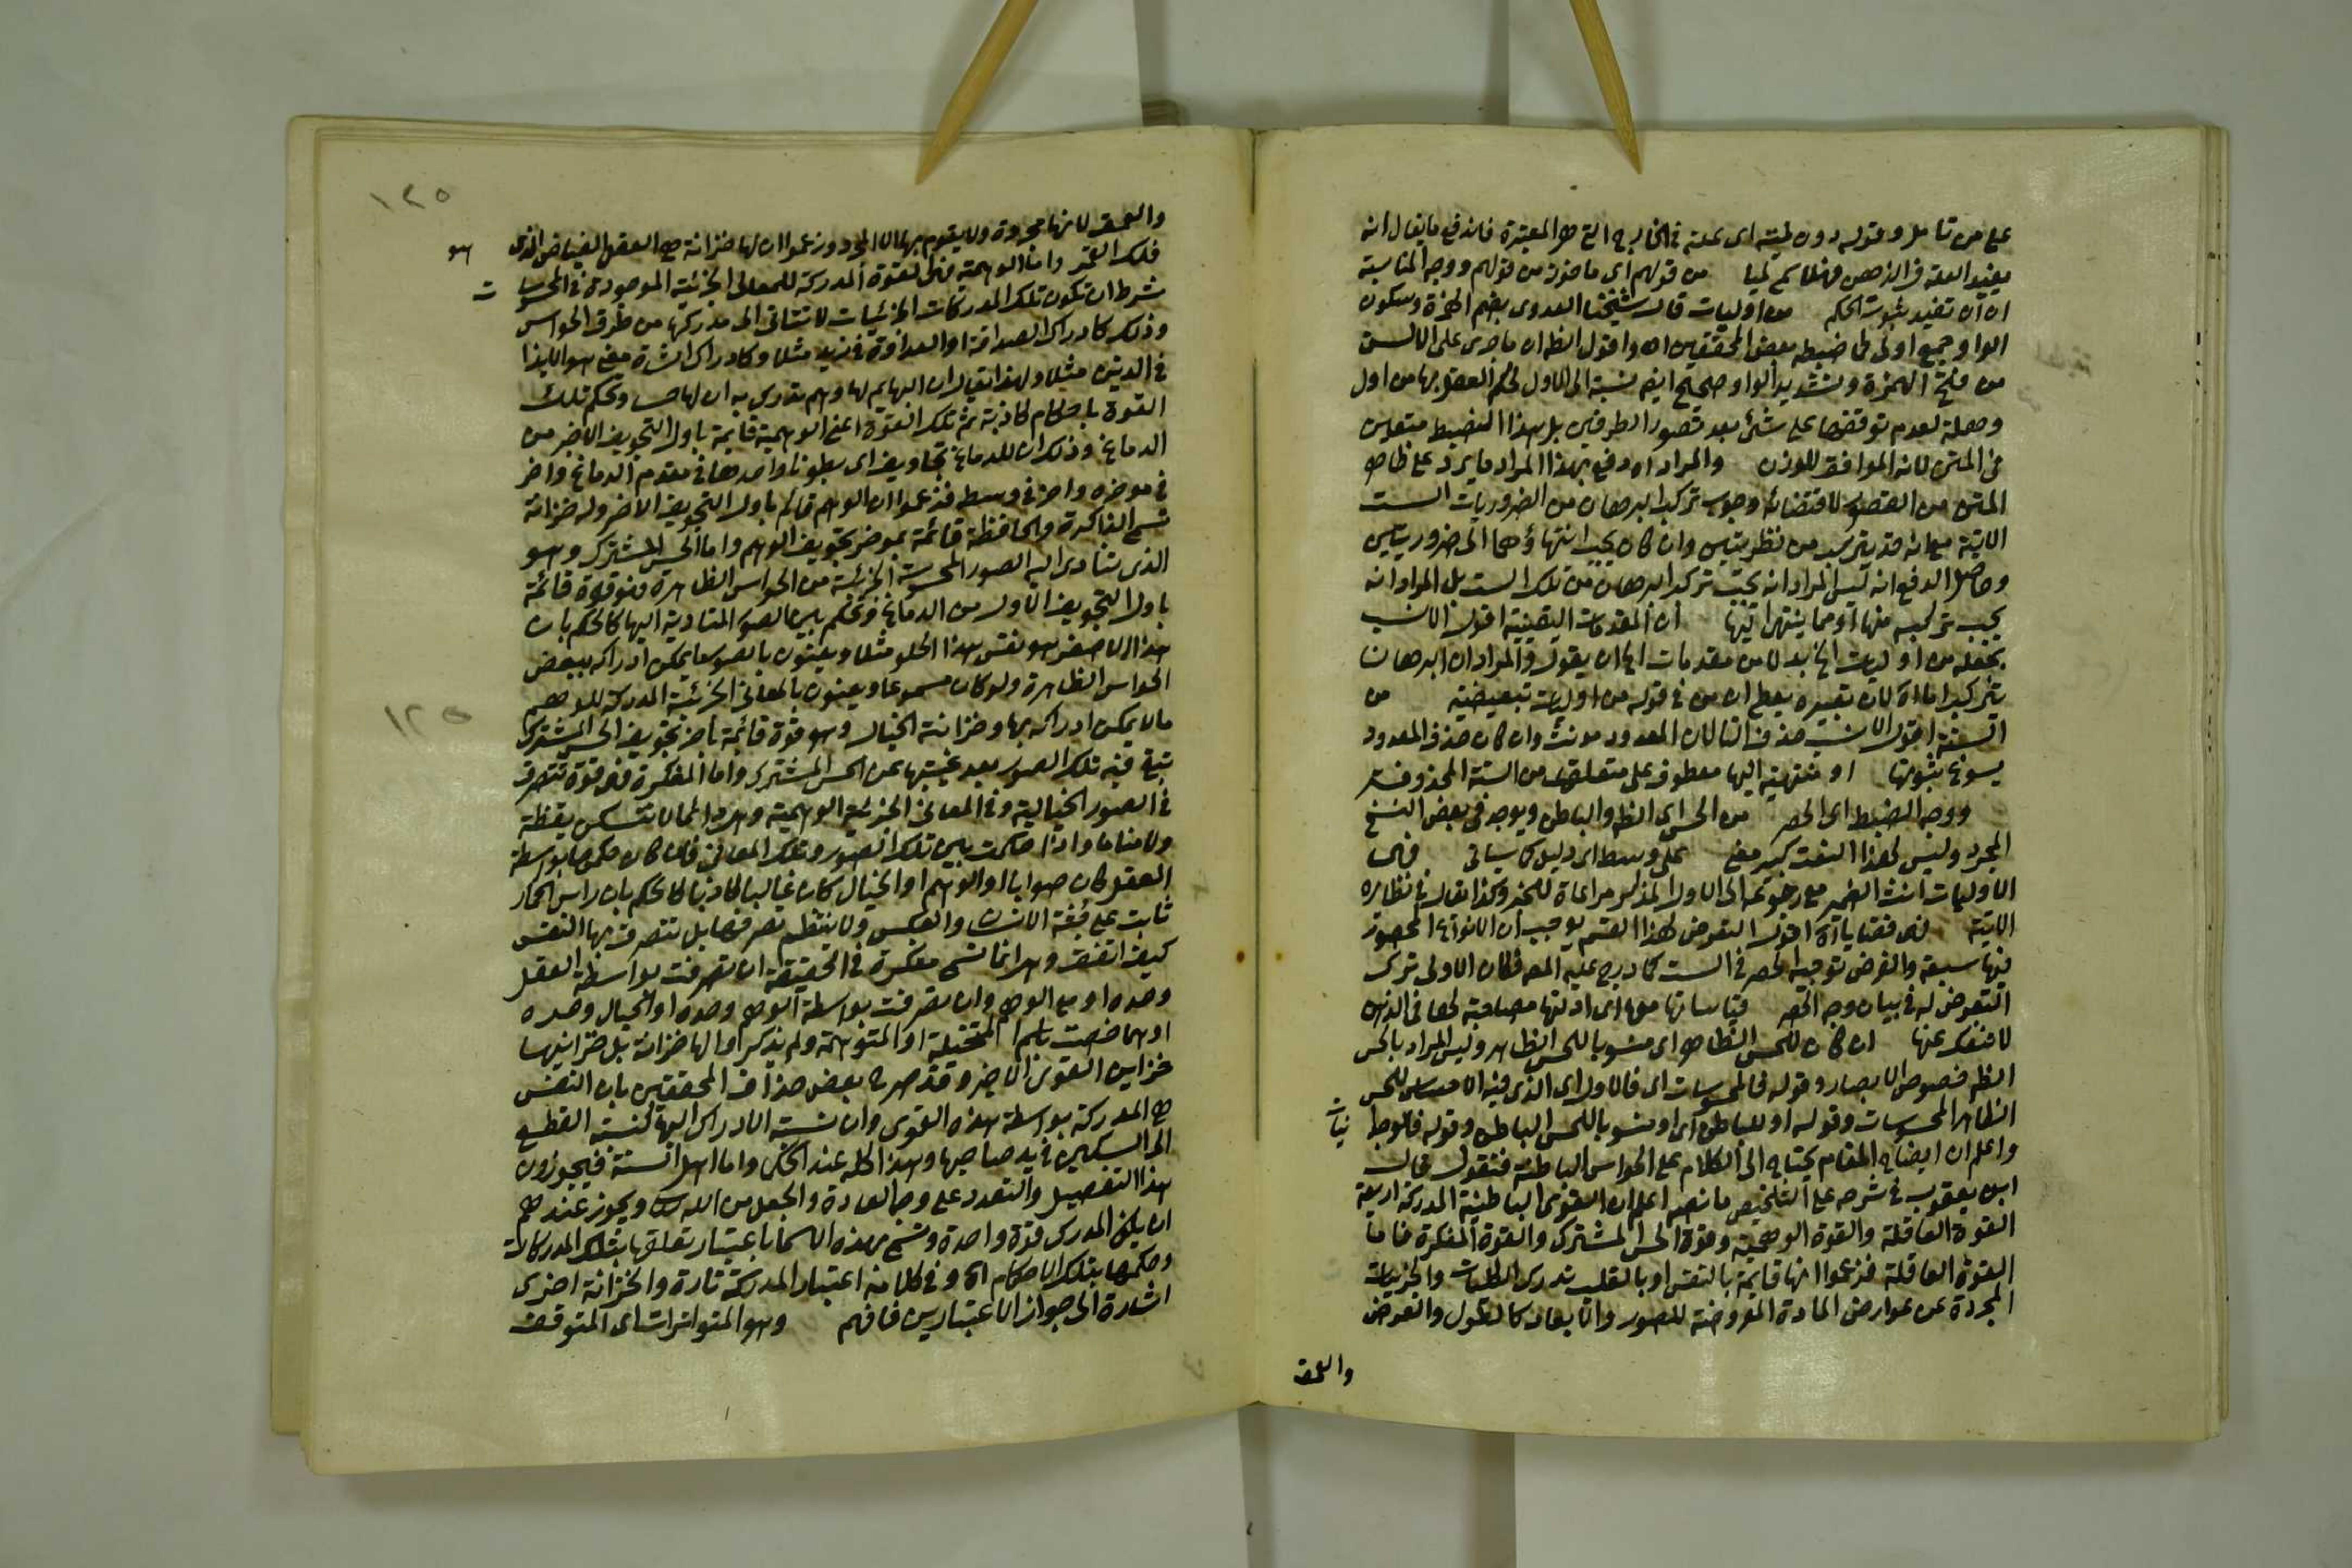 على من تأمل وقوله دون لميته اى علته فى الخارج التى هى المعتبرة فاندفع ما يقال انه
يفيد العلة فى الذهن فهلا سمى لميا من قولهم اى ماخوذ من قولهم ووجه المناسبة
ان ان تفيد ثبوت الحكم من اوليات قال شيخنا العدوى بضم الهمزة وسكون
الواو جمع اولى كما ضبطه بعض المحققين اه واقول الظ ان ما جرى على الالسن
من فتح الهمزة وتشديد الواو صحيح ايض نسبة الى الاول لحكم العقل بها من اول
وهلة لعدم توقفها على شئ بعد تصور الطرفين بل هذا الضبط متعين
فى المتن لانه الموافق للوزن والمراد اه دفع بهذا المراد ما يرد على ظاهر
المتن من القصور لاقتضائه وجوب تركب البرهان من الضروريات الست
الاتية مع انه قد يتركب من نظريتين وان كان يجب انتهاؤهما الى ضروريتين
وحاصل الدفع انه ليس المراد انه يجب تركب البرهان من تلك الست بل المراد انه
يجب تركبه منها او مما ينتهى اليها ان المقدمات اليقينية اقول الانسب
بجعله من اوليات الخ بدلا من مقدمات الخ ان يقول والمراد ان البرهان
يتركب اما اه لان تعبيره يعطى ان من فى قوله من اوليات تبعيضية من
الستة اقول الانسب حذف التا لان المعدود مونث وان كان حذف المعدود
يسوغ ثبوتها او منتهية اليها معطوف على متعلق من الستة المحذوف
ووجه الضبط اى الحصر من الحس اى الظ والباطن ويوجد فى بعض النسخ
المجرد وليس لهذا النعت كبير معنى على وسط اى دليل كما سياتى فهى
الاوليات انث الضمير مع رجوعه الى الاول المذكر مراعاة للخبر وكذا يقال فى نظائره
الاتية فهى قضايا اه اقول التعرض لهذا القسم يوجب ان الانواع المحصورة
فيها سبعة والغرض توجيه الحصر فى الست كما درج عليه المص فكان الاولى ترك
التعرض له فى بيان وجه الحصر قياساتها معها اى ادلتها مصاحبة لها فى الذهن
لا تنفك عنها ان كان للحس الظاهر اى منسوبا للحس الظاهر وليس المراد بالحس
الظ خصوص الابصار وقوله فالمحسوسات اى فالاول اى الذى فيه الاحساس للحس
الظاهر المحسوسات وقوله او للباطن اى او منسوبا للحس الباطن وقوله فالوجدا
نيات
واعلم ان ايضاح المقام يحتاج الى الكلام على الحواس الباطنة فنقول قال
ابن يعقوب فى شرحه على التلخيص ما نصه اعلم ان القوى الباطنية المدركة اربعة
القوة العاقلة والقوة الوهمية وقوة الحس المشترك والقوة المفكرة فاما
القوة العاقلة فزعموا انها قايمة بالنفس او بالقلب تدرك الكليات والجزييات
المجردة عن عوارض المادة المعروضة للصور والابعاد كالطول والعرض
والعمق
١٢٥
والعمق لانها مجردة ولا يقوم بها الا المجرد وزعموا ان لها خزانة هى العقل الفياض الذى هو
فلك القمر واما الوهمية فهى القوة المدركة للمعانى الجزئية الموجودة فى المحسوسات
شرط ان تكون تلك المدركات الجزئيات لا تتاتى الى مدركها من طرق الحواس
وذلك كادراك الصداقة او العداوة فى زيد مثلا وكادراك الشاة معنى هو الايذا
فى الذيب مثلا ولهذا يقال ان البهايم لها وهم تدرك به ان لها حسا وتحكم تلك
القوة باحكام كاذبة ثم تلك القوة اعنى الوهمية قايمة باول التجويف الاخير من
الدماغ وذلك ان للدماغ تجاويف اى بطونا واحدها فى مقدم الدماغ واخر
فى موخره واخر فى وسطه فزعموا ان الوهم قائم باول التجويف الاخر وله خزانة
تسمى الذاكرة والحافظة قائمة بموخر تجويف الوهم واما الحس المشترك وهو
الذى تتادى اليه الصور المحسوسة الجزئية من الحواس الظاهرة فهو قوة قائمة
باول التجويف الاول من الدماغ فتحكم بين الصور المتادية اليها كالحكم بان
هذا الاصفر هو نفس هذا الحلو مثلا ويعنون بالصور ما يمكن ادراكه ببعض
الحواس الظاهرة ولو كان مسموعا ويعنون بالمعانى الجزئية المدركة للوهم
ما لا يمكن ادراكه بها وخزانته الخيال وهو قوة قائمة باخر تجويف الحس المشترك
تبقى فيه تلك الصور بعد غيبتها عن الحس المشترك واما المفكرة فهى قوة تتصرف
فى الصور الخيالية وفى المعانى الجزئية الوهمية وهى دائما لا تسكن يقظة
ولا مناما واذا حكمت بين تلك الصور وتلك المعانى فان كان حكمها بواسطة
العقل كان صوابا او الوهم او الخيال كان غالبا كاذبا كالحكم بان راس الحمار
ثابت على جثة الانسان والعكس ولا ينتظم تصرفها بل تتصرف بها النفس
كيف اتفقت وهى انما تسمى مفكرة فى الحقيقة ان تصرفت بواسطة العقل
وحده او مع الوهم وان تصرفت بواسطة الوهم وحده او الخيال وحده
او هما خصت باسم المتخيلة او المتوهمة ولم يذكروا لها خزانة بل خزانتها
خزاين القوى الاخر وقد صرح بعض حذاق المحققين بان النفس
هى المدركة بواسطة هذه القوى وان نسبة الادراك اليها كنسبة القطع
الى السكين فى يد صاحبها وهذا كله عند الحكما واما اهل السنة فيجوزون
هذا التفصيل والتعدد على وجه العادة والجعل من الله ويجوز عندهم
ان يكون المدرك قوة واحدة وتسمى بهذه الاسما باعتبار تعلقها بتلك المدركات
وحكمها بتلك الاحكام اه وفى كلامه اعتبار المدركة تارة والخزانة اخرى
اشارة الى جواز الاعتبارين فافهم وهو المتواترات اى المتوقف
١٢٥